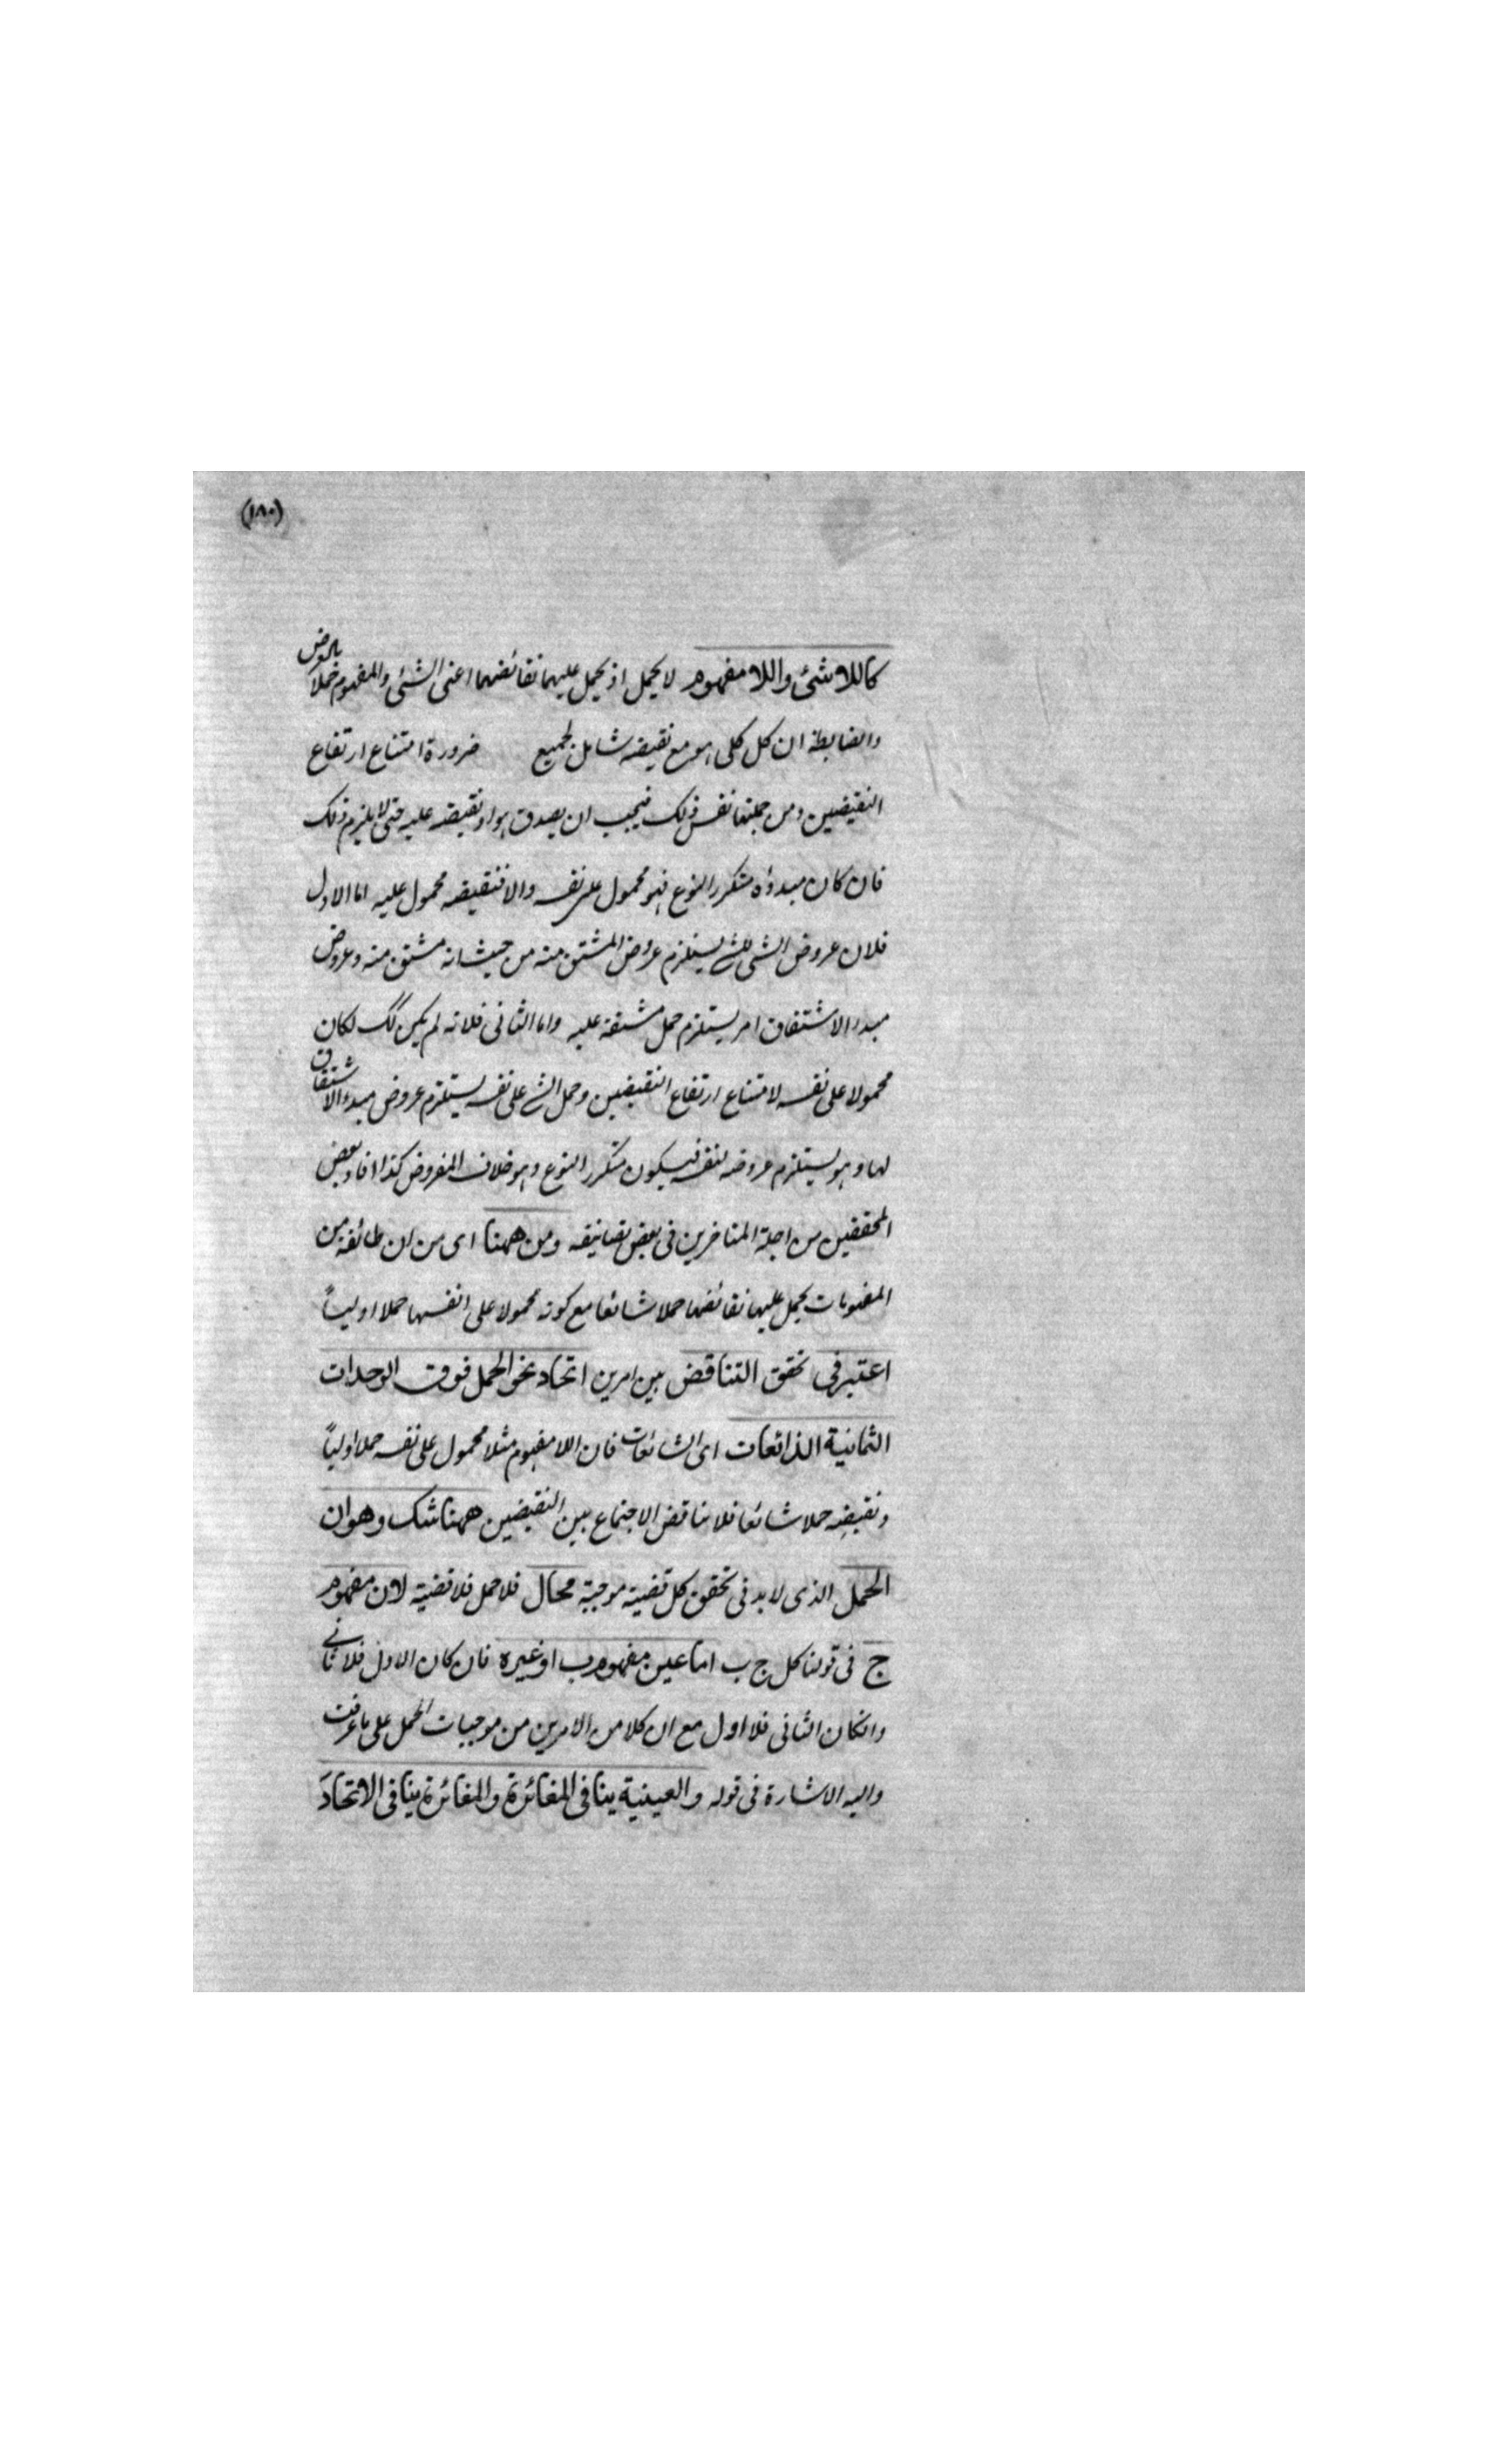 (١٨٠)
كاللاشئ واللا مفهوم لا يحمل اذ يحمل عليهما نقائضهما اعنى الشئ والمفهوم حملا بالعرض
والضابطة ان كل كلى هو مع نقيضه شامل لجميع ضرورة امتناع ارتفاع
النقيضين ومن جملتها نفس ذلك فيجب ان يصدق هو او نقيضه عليه حتى لا يلزم ذلك
فان كان مبدؤه متكرر النوع فهو محمول على نفسه والا فنقيضه محمول عليه اما الاول
فلان عروض الشى للشے يستلزم عروض المشتق منه من حيث انه مشتق منه وعروض
مبدء الاشتقاق امر يستلزم حمل مشتقة عليه واما الثانى فلانه لم يكن كك لكان
محمولا على نفسه لامتناع ارتفاع النقيضين وحمل الشے على نفسه يستلزم عروض مبدء الاشتقاق
لها وهو يستلزم عروضه لنفسه فيكون متكرر النوع وهو خلاف المفروض كذا افاد بعض
المحققين من اجلة المتاخرين فى بعض تصانيفه ومن ههنا اى من ان طائفة من
المفهومات يحمل عليها نقائضها حملا شائعا مع كونه محمولا على انفسها حملا اولياً
اعتبر فى تحقق التناقض بين امرين اتحاد نحو الحمل فوق الوحدات
الثمانية الذائعات اى الشائعات فان اللا مفهوم مثلا محمول على نفسه حملا اولياً
ونقيضه حملا شائعا فلا تناقض الاجتماع بين النقيضين ههنا شك وهو ان
الحمل الذى لابد فى تحقق كل قضية موجبة محال فلا حمل فلا قضية لان مفهوم
ج فى قولنا كل ج ب اما عين مفهوم ب او غيره فان كان الاول فلا ثانى
وانكان الثانى فلا اول مع ان كلا من الامرين من موجبات الحمل على ما عرفت
واليه الاشارة فى قوله والعينية ينافى المغائرة والمغائرة ينافى الاتحاد